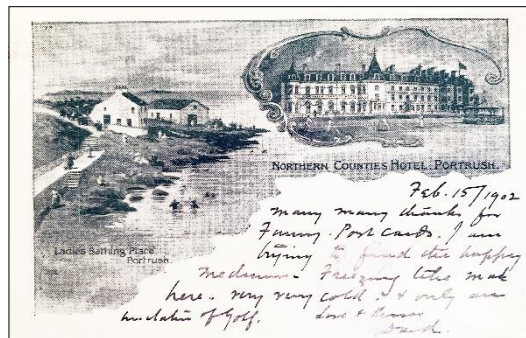 NORTHERN COUNTIES HOTEL, PORTRUSH.
Ladies Bathing Place
Portrush.
Feb. 15/1902
Many many thanks for
Funny Post Cards. I am
trying to find the happy
Medium - Freezing
here - very very cold - & only
of Golf.
Love &